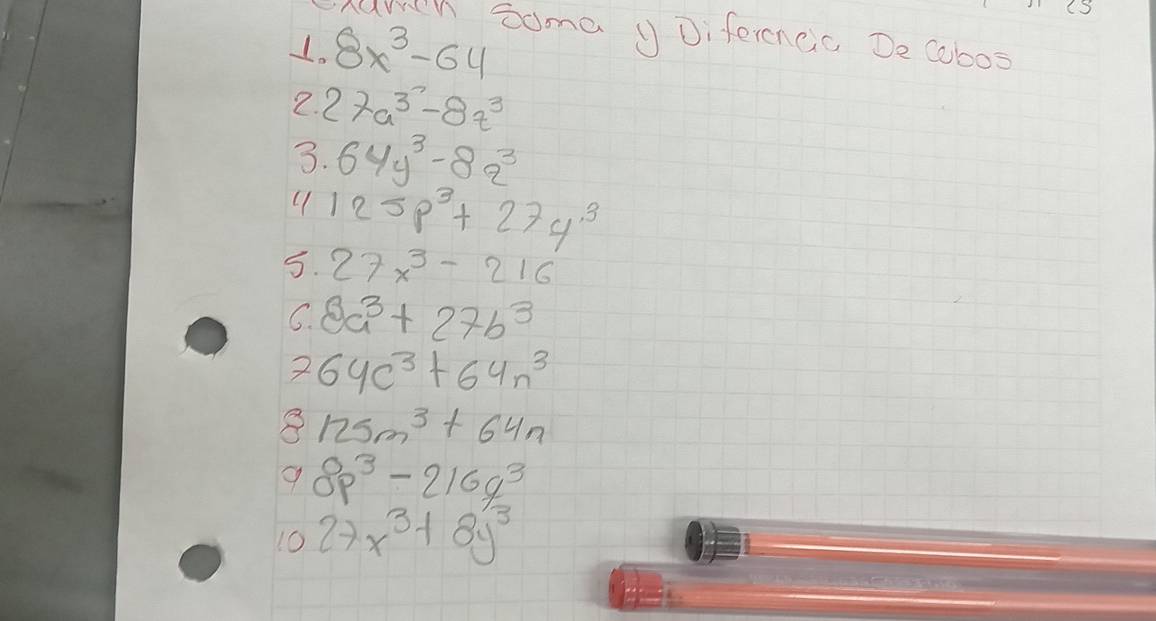 Examen Soma y Diferencia De cubos
1. 8x³-64
2. 27a³-8z³
3. 64y³-8z³
4 125p³+27q³
5. 27x³-216
6. 8a³+27b³
7 64c³+64n³
8 125m³+64n
9 8p³-216q³
10 27x³+8y³